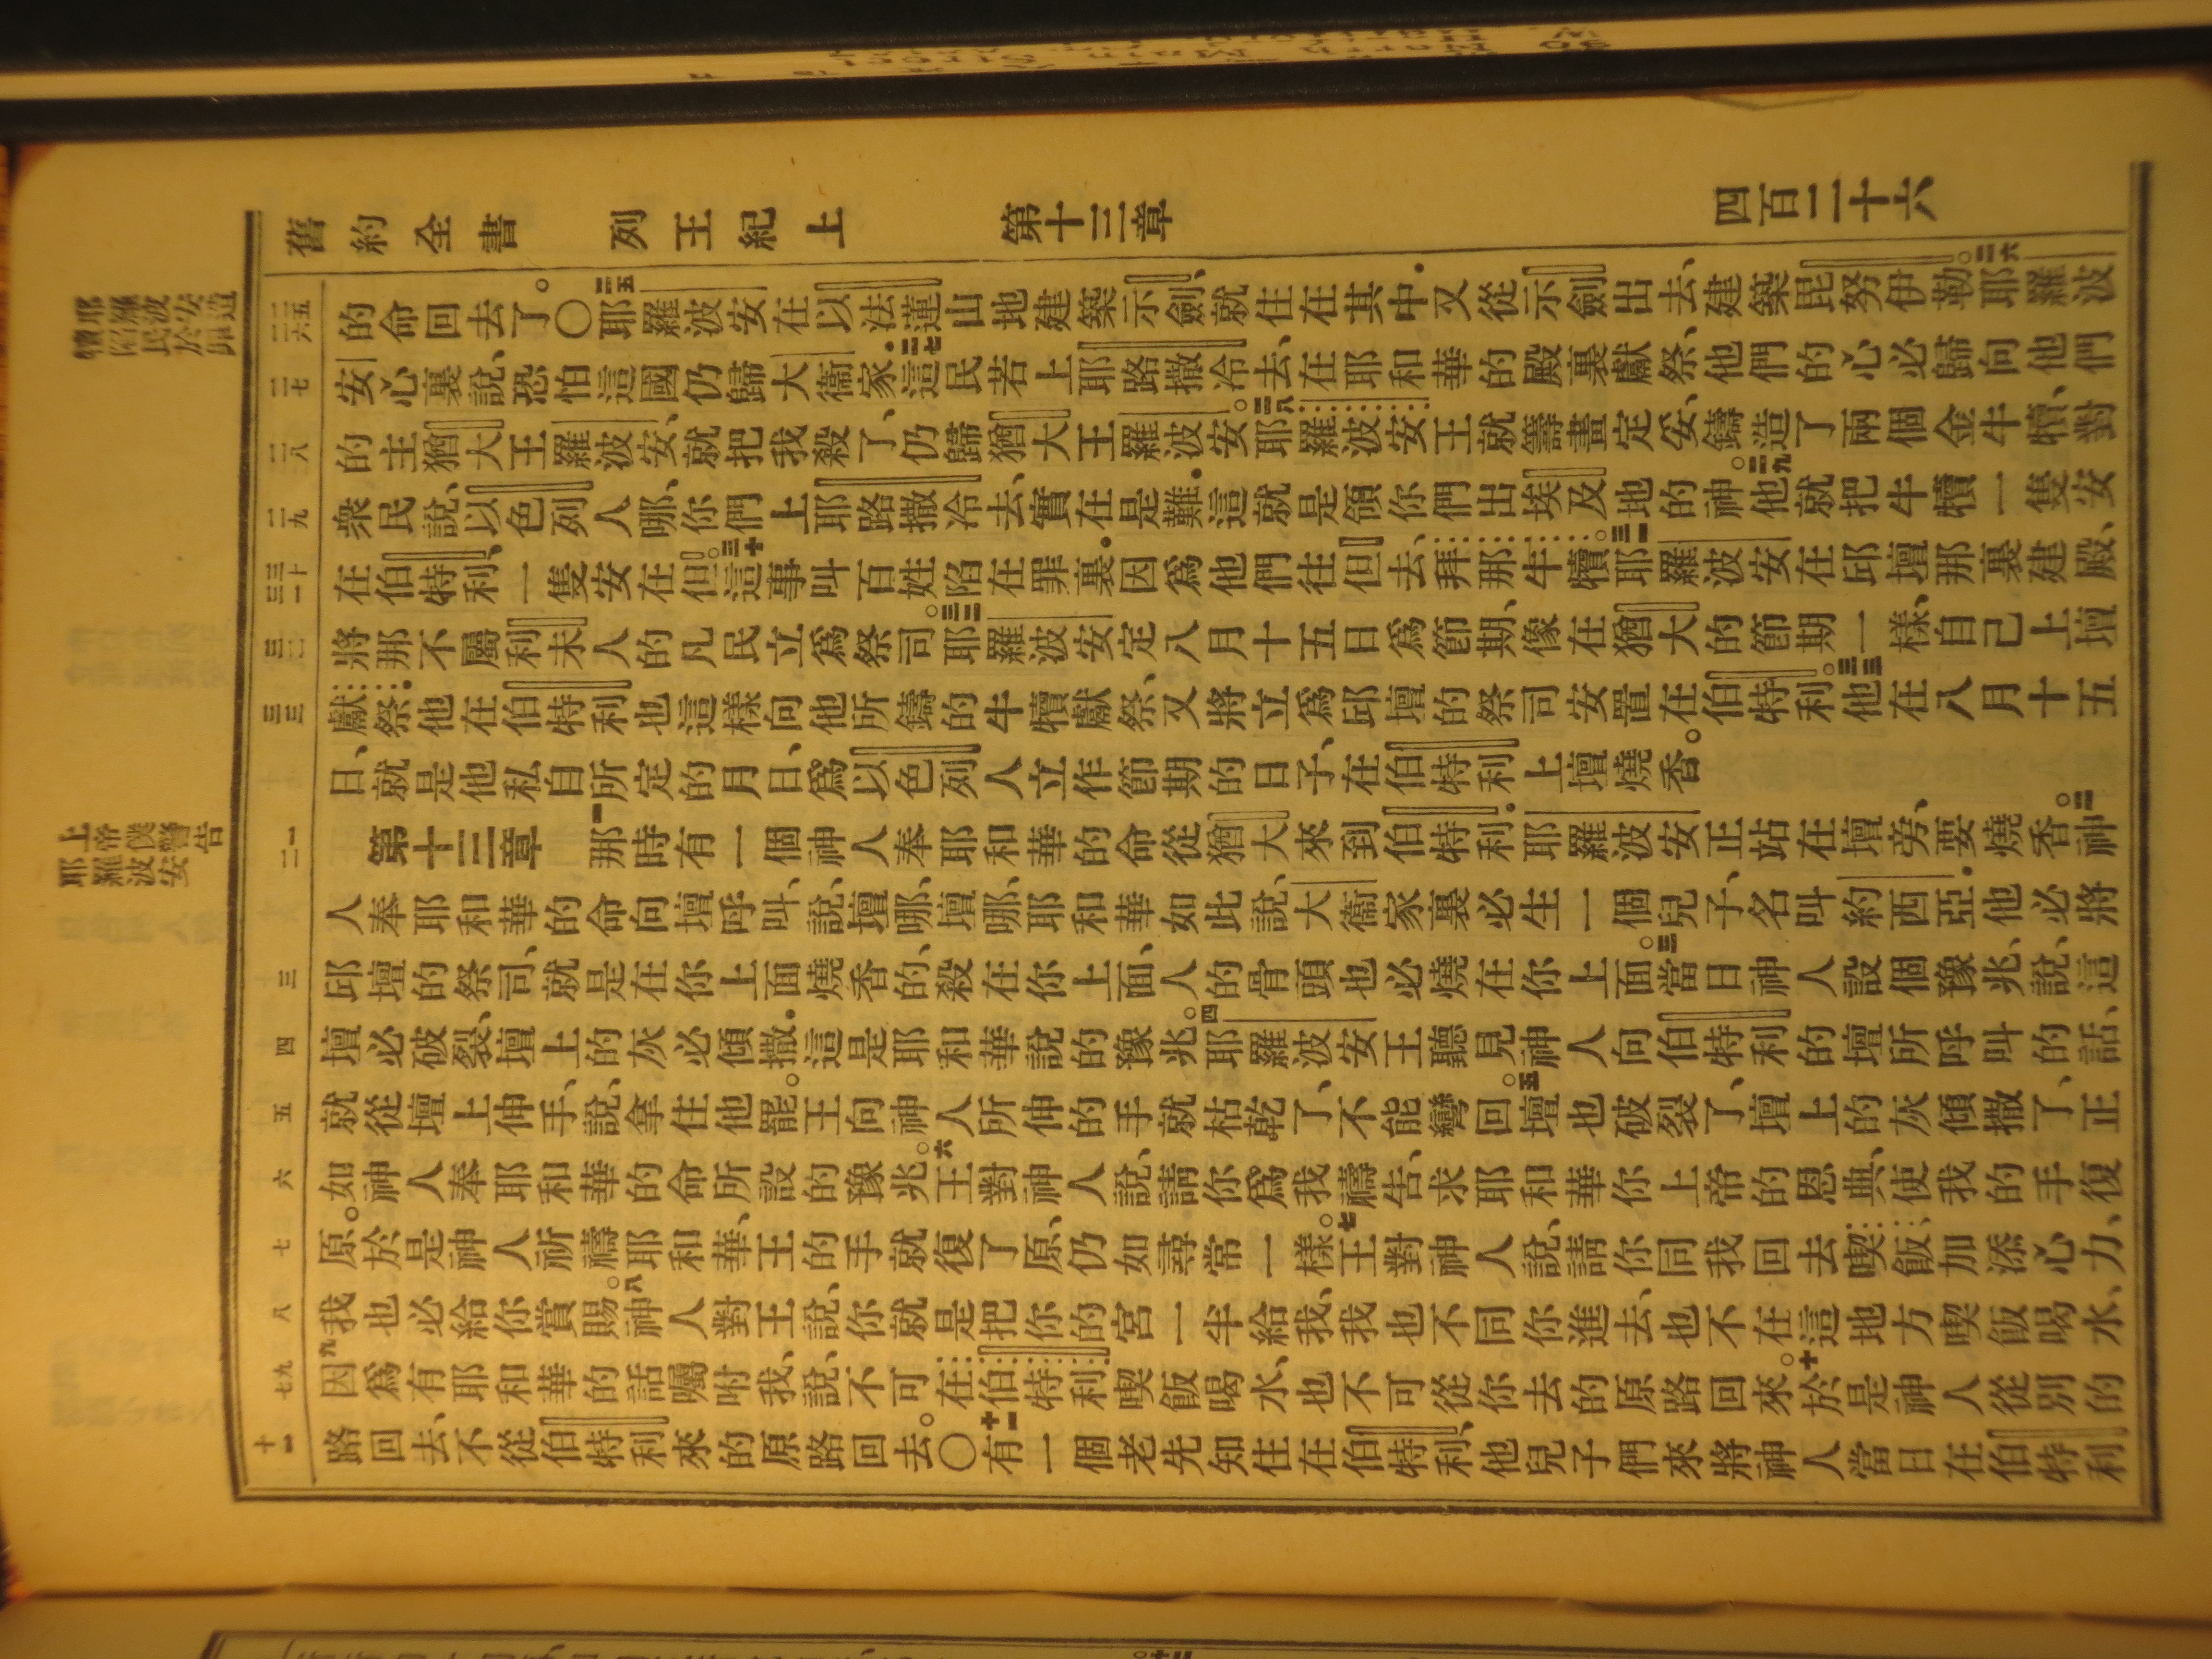 舊約全書 列王紀上 第十三章 四百二十六
二五 二六
的命回去了。〇二五耶羅波安在以法蓮山地建築示劍、就住在其中．又從示劍出去、建築毘努伊勒。二六耶羅波
二七
安心裏說、恐怕這國仍歸大衞家．二七這民若上耶路撒冷去、在耶和華的殿裏獻祭、他們的心必歸向他們
二八
的主猶大王羅波安、就把我殺了、仍歸猶大王羅波安。二八耶羅波安王就籌畫定妥、鑄造了兩個金牛犢、對
二九
衆民說、以色列人哪、你們上耶路撒冷去、實在是難．這就是領你們出埃及地的神。二九他就把牛犢一隻安
三十 三一
在伯特利、一隻安在但。三十這事叫百姓陷在罪裏．因爲他們往但去、拜那牛犢。三一耶羅波安在邱壇那裏建殿、
三二
將那不屬利未人的凡民立爲祭司。三二耶羅波安定八月十五日爲節期、像在猶大的節期一樣、自己上壇
三三
獻祭．他在伯特利也這樣向他所鑄的牛犢獻祭、又將立爲邱壇的祭司安置在伯特利。三三他在八月十五
日、就是他私自所定的月日、爲以色列人立作節期的日子、在伯特利上壇燒香。
一 二
第十三章 一那時有一個神人奉耶和華的命從猶大來到伯特利．耶羅波安正站在壇旁、要燒香。二神
人奉耶和華的命向壇呼叫、說、壇哪、壇哪、耶和華如此說、大衞家裏必生一個兒子、名叫約西亞．他必將
三
邱壇的祭司、就是在你上面燒香的、殺在你上面、人的骨頭也必燒在你上面。三當日神人設個豫兆、說、這
四
壇必破裂、壇上的灰必傾撒．這是耶和華說的豫兆。四耶羅波安王聽見神人向伯特利的壇所呼叫的話、
五
就從壇上伸手、說、拿住他罷。王向神人所伸的手就枯乾了、不能彎回。五壇也破裂了、壇上的灰傾撒了、正
六
如神人奉耶和華的命所設的豫兆。六王對神人說、請你爲我禱告、求耶和華你上帝的恩典、使我的手復
七
原。於是神人祈禱耶和華、王的手就復了原、仍如尋常一樣。七王對神人說、請你同我回去喫飯、加添心力、
八
我也必給你賞賜。八神人對王說、你就是把你的宮一半給我、我也不同你進去、也不在這地方喫飯喝水、
九 十
九因爲有耶和華的話囑咐我、說、不可在伯特利喫飯喝水、也不可從你去的原路回來。十於是神人從別的
十一
路回去、不從伯特利來的原路回去。〇十一有一個老先知住在伯特利、他兒子們來將神人當日在伯特利
上帝僕警告
耶羅波安